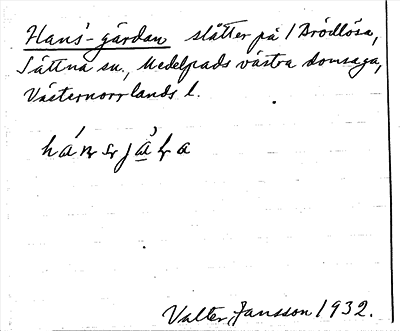 Hans'-gärdan slåtter på 1 Brödlösa,
Sättna sn., Medelpads västra domsaga,
Västernorrlands l.
Valter Jansson 1932.